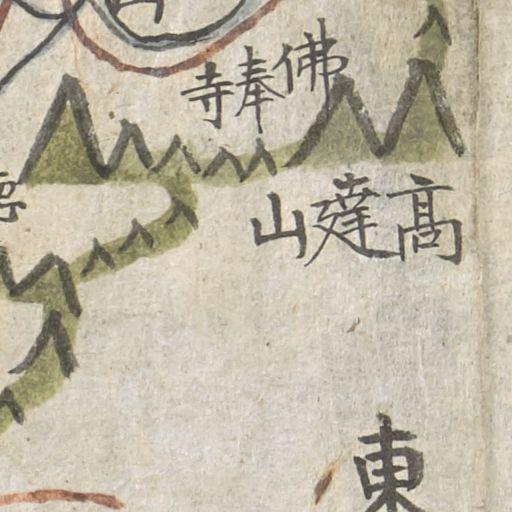 佛奉寺
高達山
東